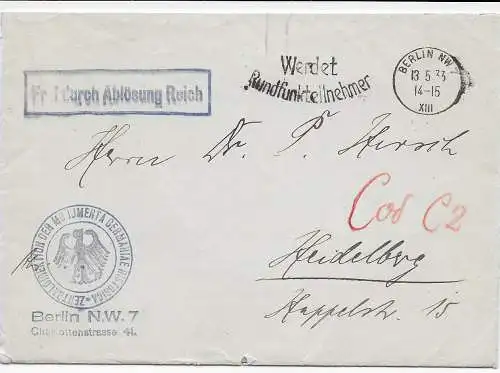 Werdet
Rundfunkteilnehmer
BERLIN NW
13 5 33
14-15
XIII
Frei durch Ablösung Reich
Herrn Dr. P. Hirsch
Cod C2
Heidelberg
Kappelstr. 15
ZENTRALDIREKTION DER MONUMENTA GERMANIAE HISTORICA
Berlin N.W. 7
Charlottenstrasse 41.